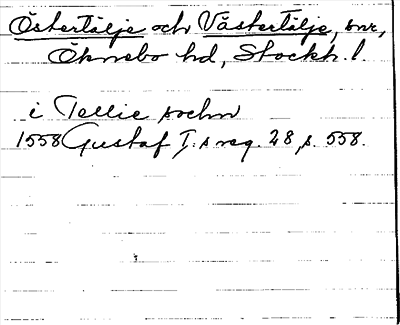 Östertälje och Västertälje, snr,
Öknebo hd, Stockh. l.
i Tellie sochn
1558 Gustaf I:s reg. 28, s. 558.